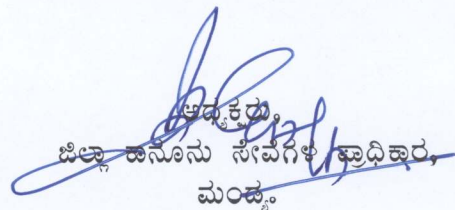 ಅಧ್ಯಕ್ಷರು,
ಜಿಲ್ಲಾ ಕಾನೂನು ಸೇವೆಗಳ ಪ್ರಾಧಿಕಾರ,
ಮಂಡ್ಯ.